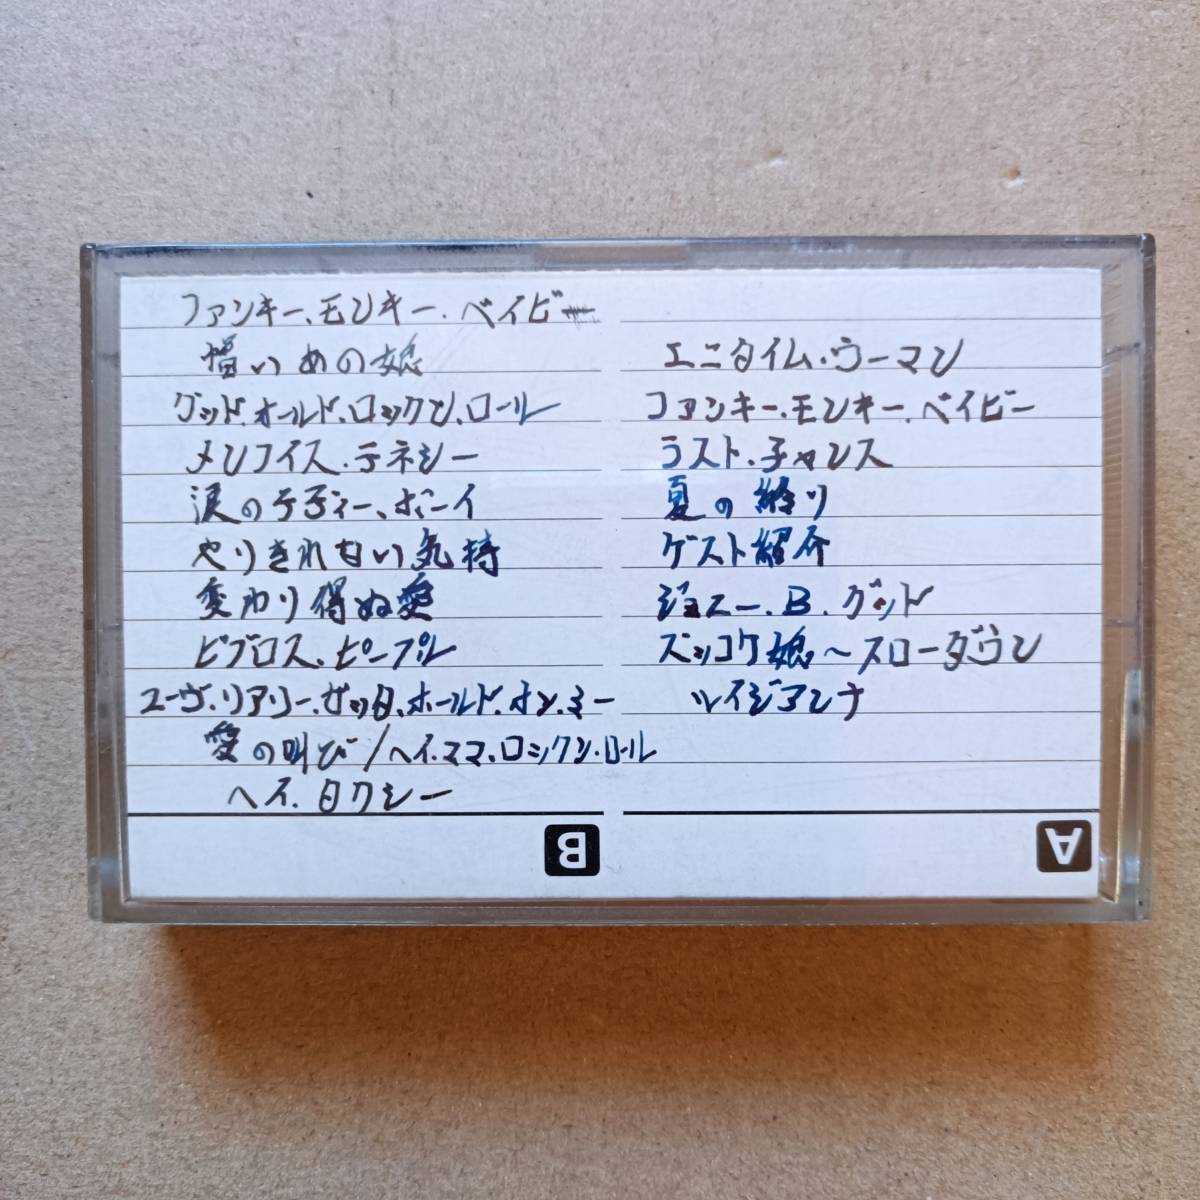 ファンキー、モンキー.ベイビー
憎いあの娘
グッド.オールド.ロックン.ロール
メンフィス.テネシー
涙のテディー、ボーイ
やりきれない気持
変わり得ぬ愛
ビブロス.ピープル
ユーヴ.リアリー.ガッタ.ホールド.オン.ミー
愛の叫び/ヘイ.ママ.ロックン.ロール
ヘイ.タクシー
B
エニタイム.ウーマン
ファンキー.モンキー.ベイビー
ラスト.チャンス
夏の終り
ゲスト紹介
ジョニー.B.グッド
ズッコケ娘~スローダウン
ルイジアンナ
A